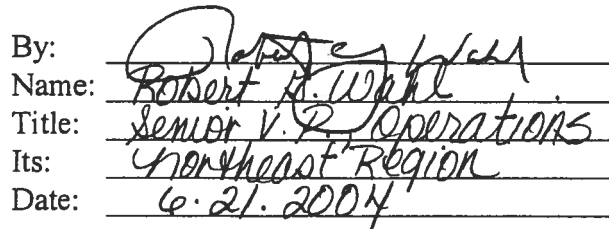 By: Robert G. Wahl
Name: Robert G. Wahl
Title: Senior V.P., Operations
Its: Northeast Region
Date: 6.21.2004